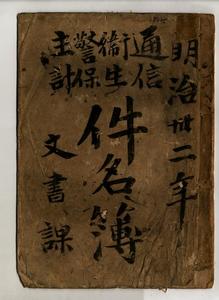 明治卅二年
通信
衛生
警保
主計
件名簿
文書課